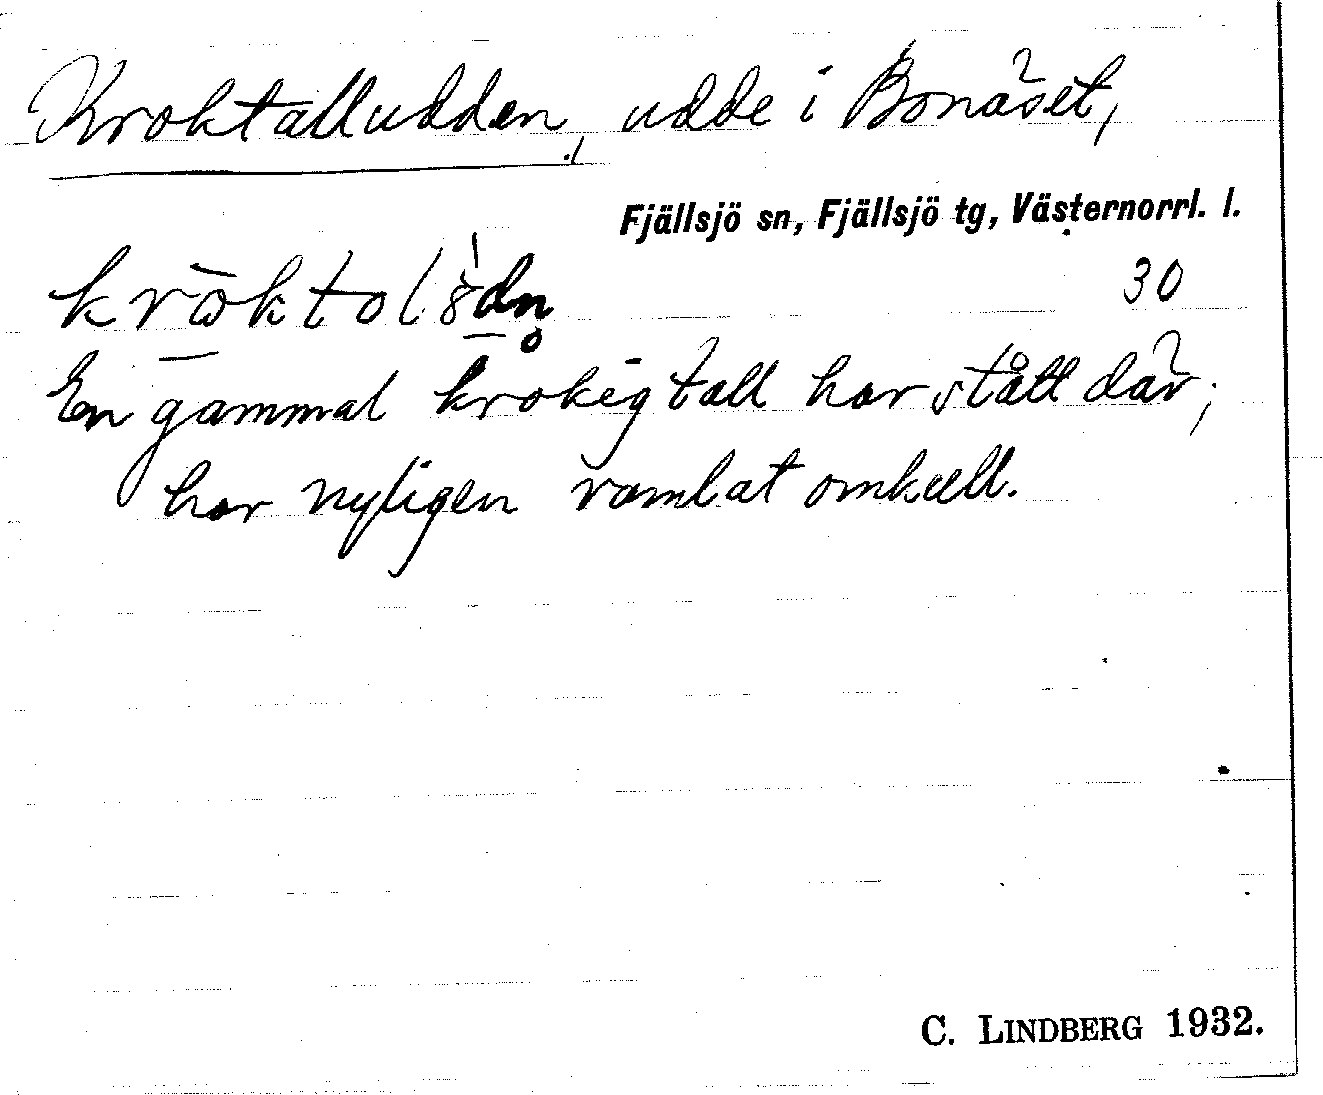 Kroktalludden, udde i Bonäset,
Fjällsjö sn, Fjällsjö tg, Västernorrl. l.
30
En gammal krokig tall har stått där;
har nyligen ramlat omkull.
C. LINDBERG 1932.